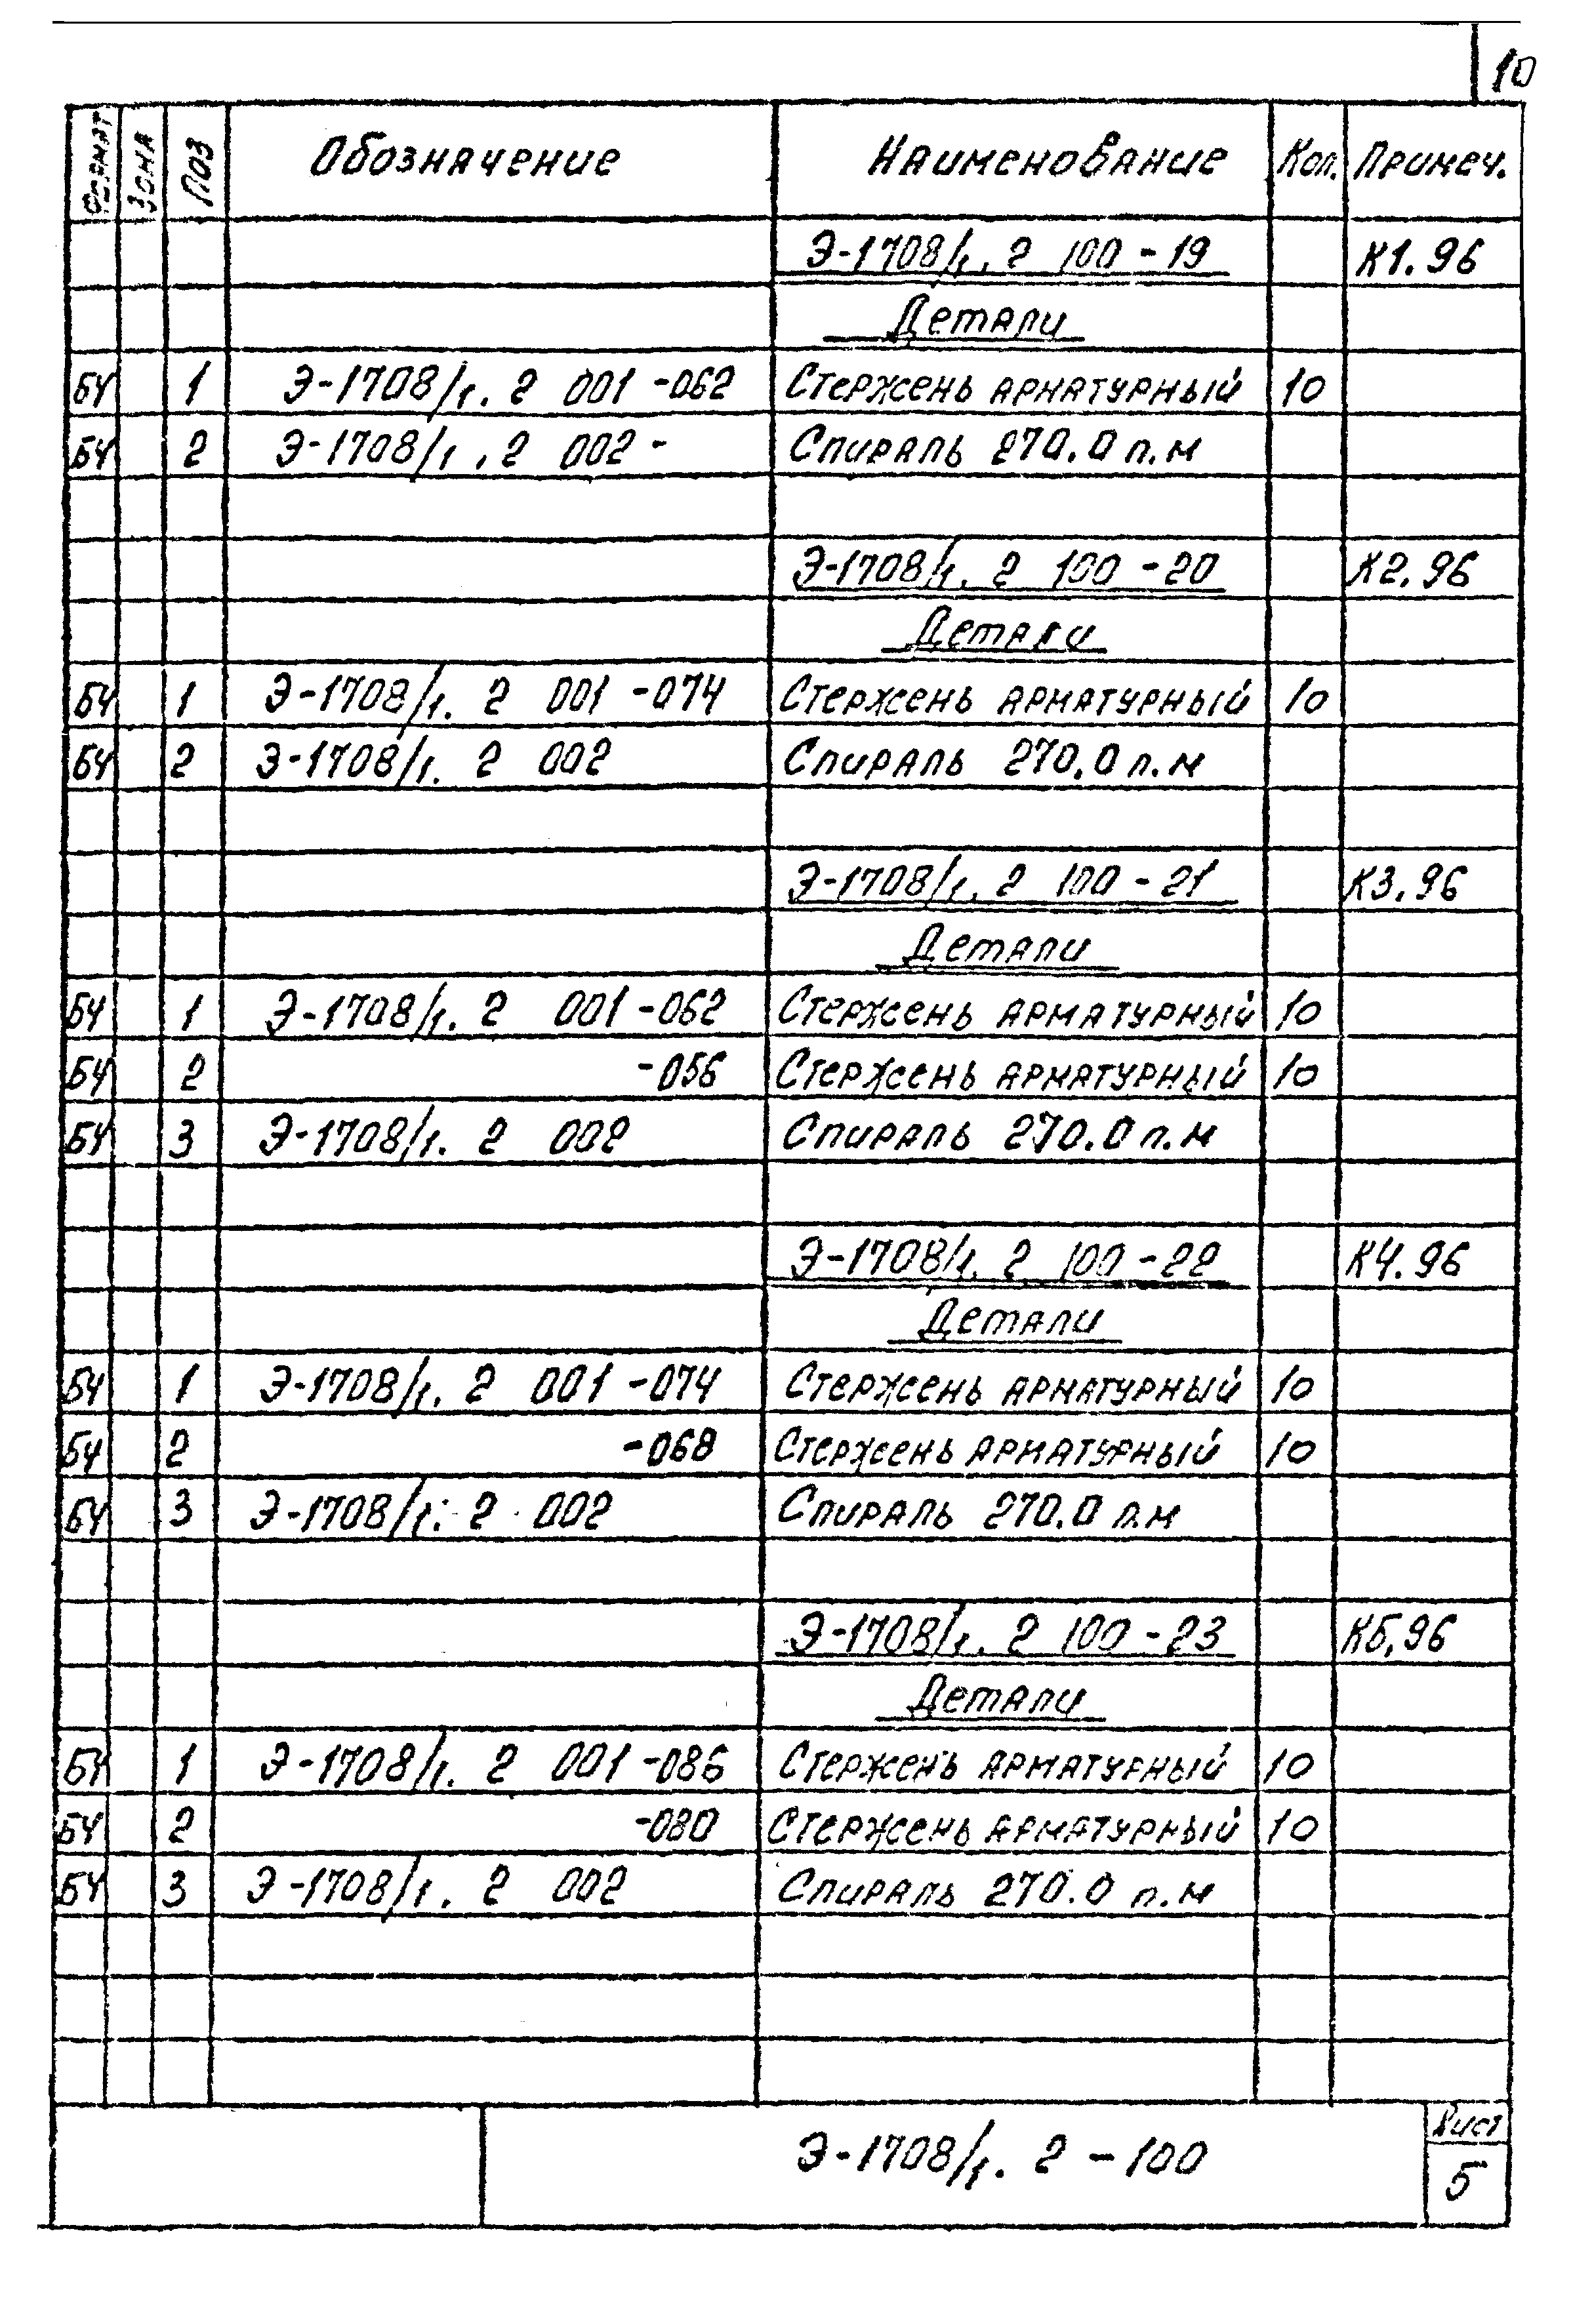 10
Формат Зона Поз Обозначение Наименование Кол. Примеч.
Э-1708/1. 2 100 - 19 К1.96
Детали
БЧ 1 Э-1708/1. 2 001 -062 Стержень арматурный 10
БЧ 2 Э-1708/1. 2 002 - Спираль 270.0 п.м
Э-1708/1. 2 100 - 20 К2.96
Детали
БЧ 1 Э-1708/1. 2 001 -074 Стержень арматурный 10
БЧ 2 Э-1708/1. 2 002 Спираль 270.0 п.м
Э-1708/1. 2 100 - 21 К3.96
Детали
БЧ 1 Э-1708/1. 2 001 -062 Стержень арматурный 10
БЧ 2 -056 Стержень арматурный 10
БЧ 3 Э-1708/1. 2 002 Спираль 270.0 п.м
Э-1708/1. 2 100 - 22 К4.96
Детали
БЧ 1 Э-1708/1. 2 001 -074 Стержень арматурный 10
БЧ 2 -068 Стержень арматурный 10
БЧ 3 Э-1708/1. 2 002 Спираль 270.0 п.м
Э-1708/1. 2 100 - 23 К5.96
Детали
БЧ 1 Э-1708/1. 2 001 -086 Стержень арматурный 10
БЧ 2 -080 Стержень арматурный 10
БЧ 3 Э-1708/1. 2 002 Спираль 270.0 п.м
Э-1708/1. 2 - 100
Лист
5